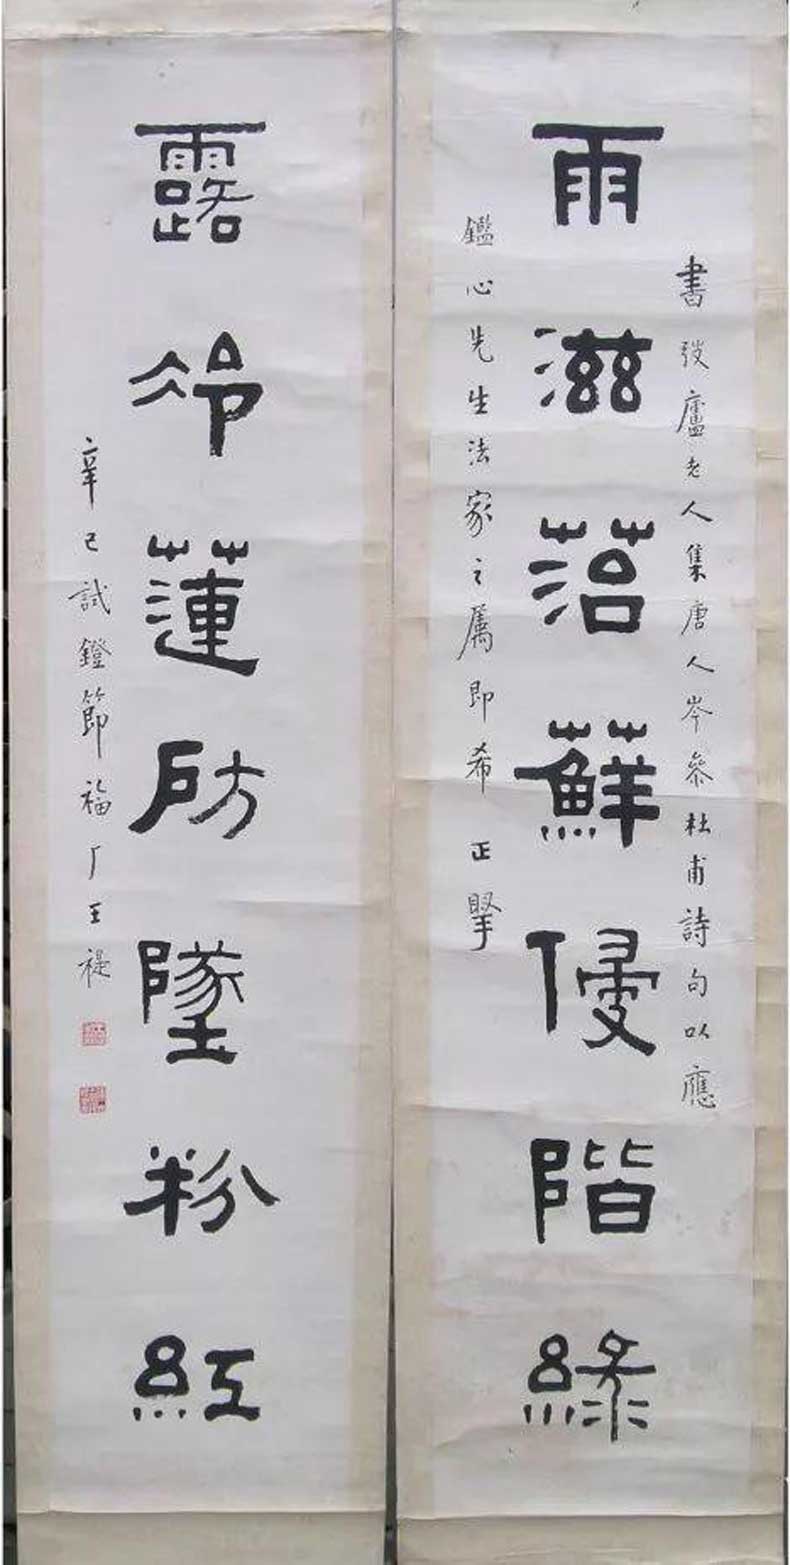 書弢廬老人集唐人岑參杜甫詩句以應
雨滋菭蘚侵階綠
鑑心先生法家之属即希正掔
露冷蓮房墜粉紅
辛巳試鐙節福厂王禔